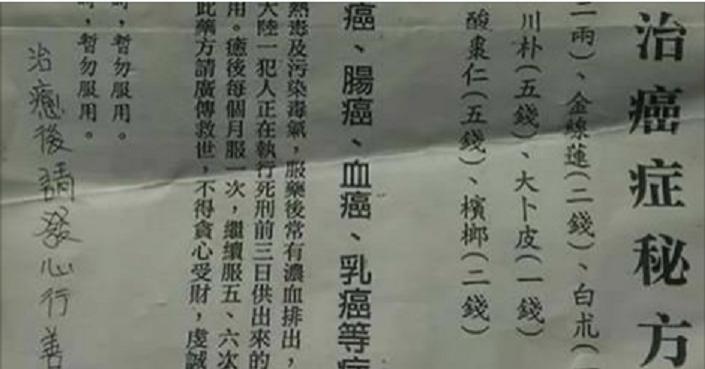 治癌症秘方
二兩)、金線蓮(二錢)、白朮(
川朴(五錢)、大卜皮(一錢)
酸棗仁(五錢)、檳榔(二錢)
癌、腸癌、血癌、乳癌等
熱毒及污染毒氣,服藥後常有濃血排出,
大陸一犯人正在執行死刑前三日供出來的
用。癒後每個月服一次,繼續服五、六次
此藥方請廣傳救世,不得貪心受財,虔誠
,暫勿服用。
,暫勿服用。
治癒後請發心行善